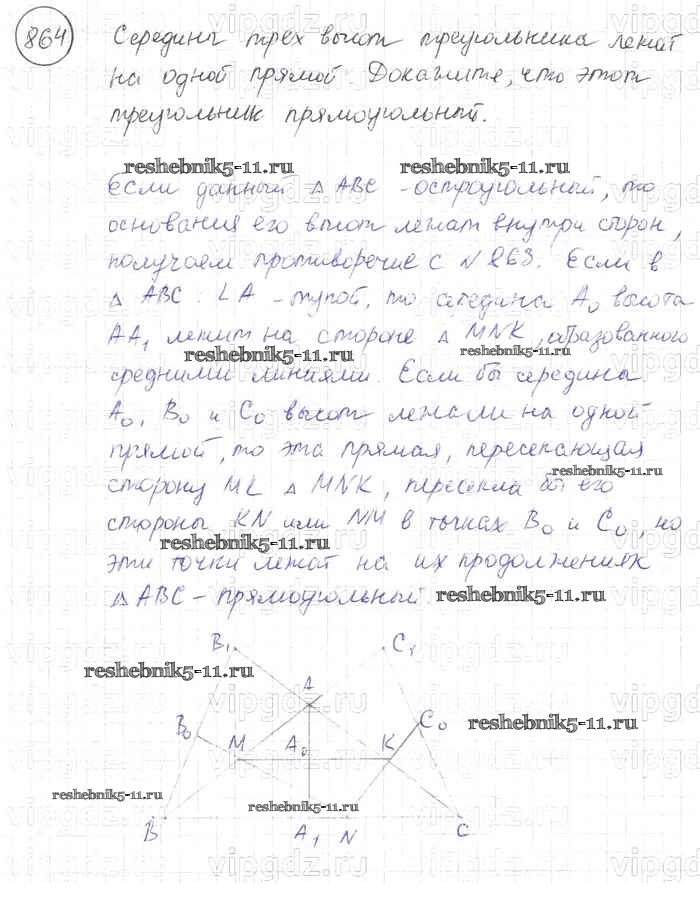 864
Середины трех высот треугольника лежат
на одной прямой. Докажите, что этот
треугольник прямоугольный.
reshebnik5-11.ru reshebnik5-11.ru
Если данный △ ABC - остроугольный, то
основания его высот лежат внутри сторон,
получаем противоречие с N 863. Если в
△ ABC: ∠A - тупой, то середина A₀ высота
AA₁ лежит на стороне △ MNK, образованного
reshebnik5-11.ru reshebnik5-11.ru
средними линиями. Если бы середина
A₀, B₀ и C₀ высот лежали на одной
прямой, то эта прямая, пересекающая
reshebnik5-11.ru
сторону MK △ MNK, пересекла бы его
стороны KN или NM в точках B₀ и C₀, но
reshebnik5-11.ru
эти точки лежат на их продолжениях
△ ABC - прямоугольный. reshebnik5-11.ru
B₁ C₁
reshebnik5-11.ru
A
B₀ C₀ reshebnik5-11.ru
M A₀ K
reshebnik5-11.ru reshebnik5-11.ru
B A₁ N C
vipgdz.ru